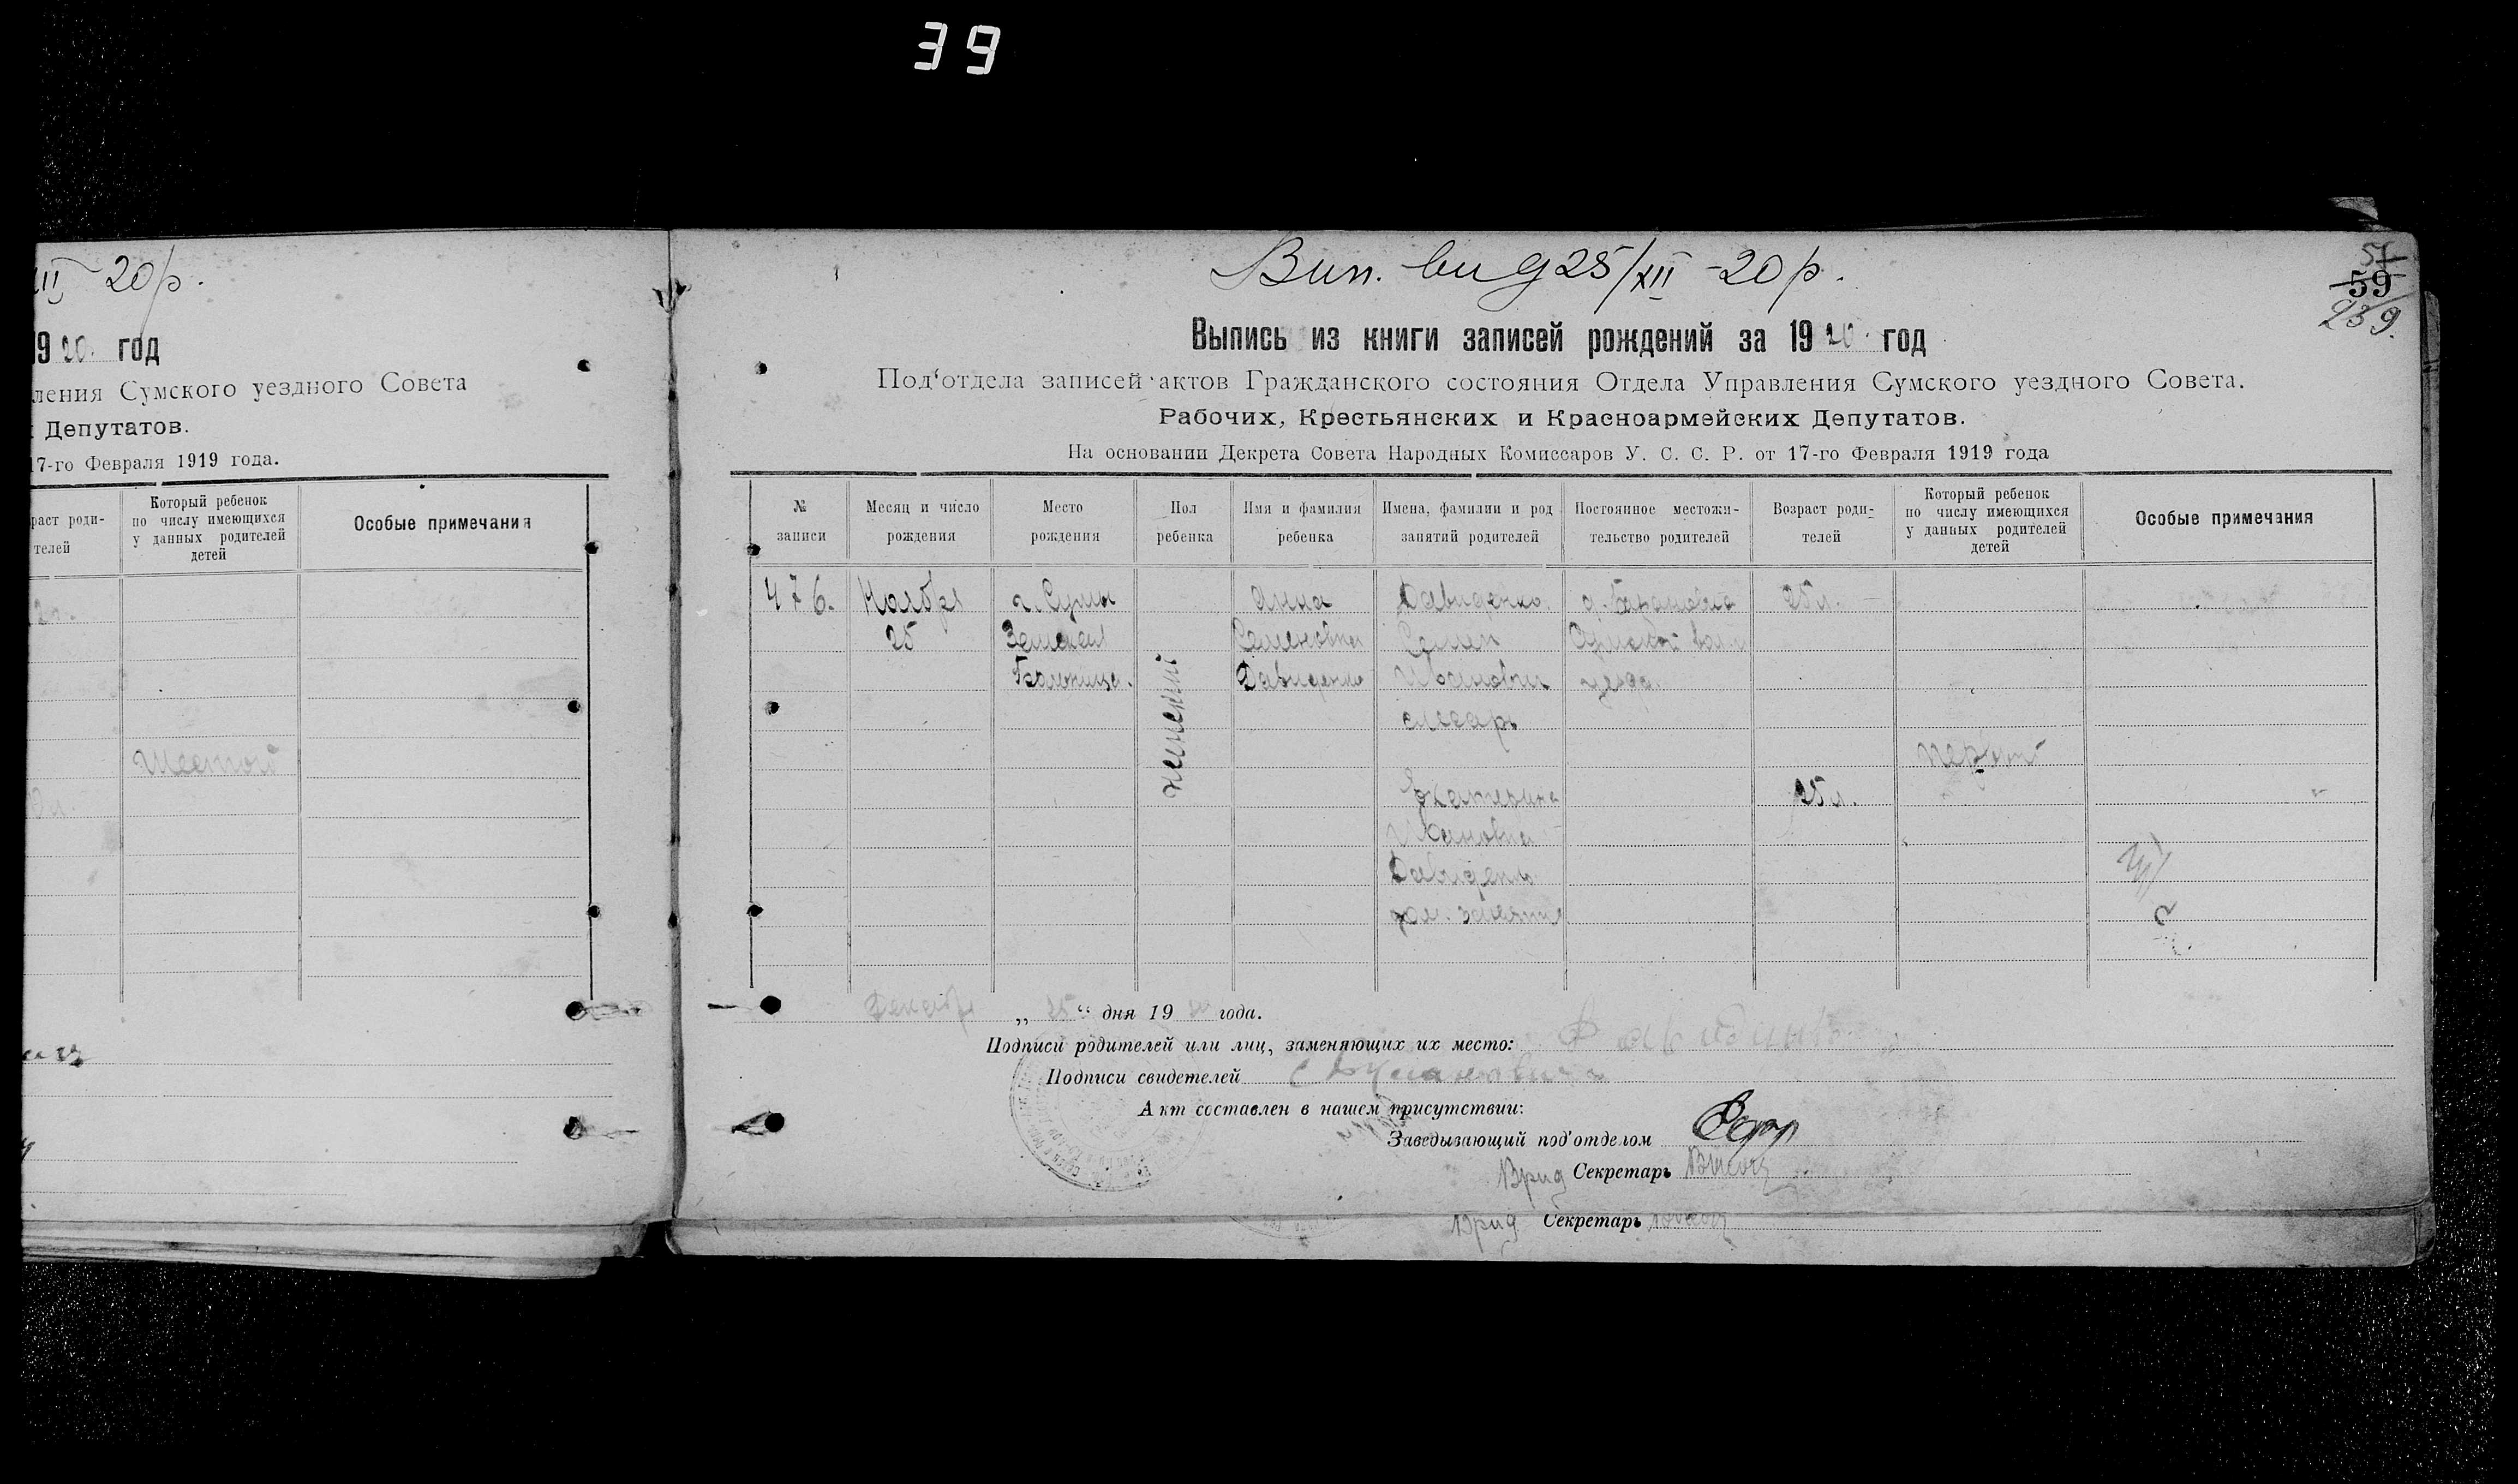 39
III 20 р.
1920. год
ления Сумского уездного Совета
Депутатов.
17-го Февраля 1919 года.
раст роди-
телей
Который ребенок
по числу имеющихся
у данных родителей
детей
Особые примечания
Шестой
Вип. вид 25/XII -20 р.
57
59
239.
Выпись из книги записей рождений за 1920. год
Под‘отдела записей актов Гражданского состояния Отдела Управления Сумского уездного Совета.
Рабочих, Крестьянских и Красноармейских Депутатов.
На основании Декрета Совета Народных Комиссаров У. С. С. Р. от 17-го Февраля 1919 года
№
записи
Месяц и число
рождения
Место
рождения
Пол
ребенка
Имя и фамилия
ребенка
Имена, фамилии и род
занятий родителей
Постоянное местожи-
тельство родителей
Возраст роди-
телей
Который ребенок
по числу имеющихся
у данных родителей
детей
Особые примечания
476.
Ноября
25
г. Сумы
Земская
Больница.
женский
Анна
Семеновна
Давиденко
Давиденко
Семен
Иванович
слесарь
Екатерина
Ивановна
Давиденко
дом. занятия
Сумской вол
уезда.
25 л.
25 л.
первый
Декабря „ 25 “ дня 1920 года.
Подписи родителей или лиц, заменяющих их место:
Подписи свидетелей
Акт составлен в нашем присутствии:
Заведывающий под‘отделом
Врид Секретарь
Врид Секретарь